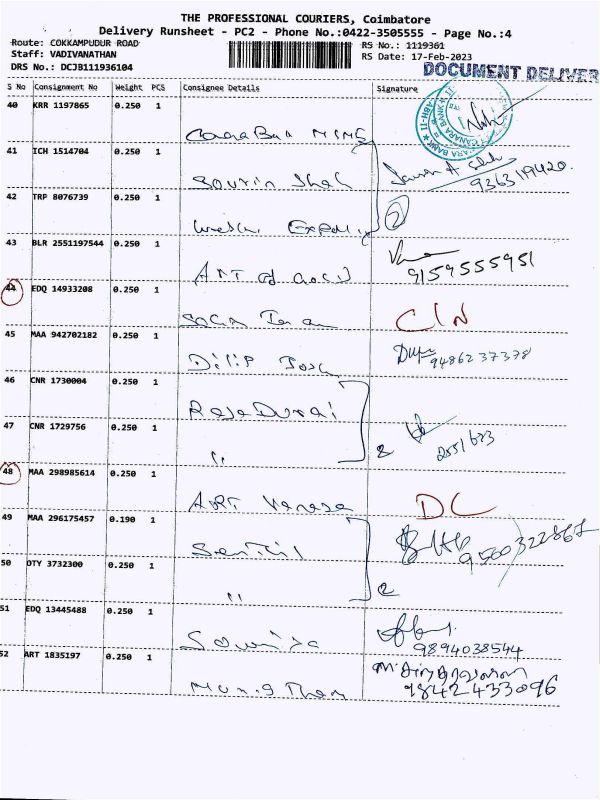 THE PROFESSIONAL COURIERS, Coimbatore
Delivery Runsheet - PC2 - Phone No.:0422-3505555 - Page No.:4
Route: COKKAMPUDUR ROAD
Staff: VADIVANATHAN
DRS No.: DCJB111936104
RS No.: 1119361
RS Date: 17-Feb-2023
DOCUMENT DELIVER
S No Consignment No Weight PCS Consignee Details Signature
40 KRR 1197865 0.250 1
41 ICH 1514704 0.250 1
Sourin Shah
9363119420
42 TRP 8076739 0.250 1
2
43 BLR 2551197544 0.250 1
ART of Gold
9159555951
44 EDQ 14933208 0.250 1
C/N
45 MAA 942702182 0.250 1
Dilip
9486237378
46 CNR 1730004 0.250 1
Raja Durai
47 CNR 1729756 0.250 1
"
2
48 MAA 298985614 0.250 1
ART
DC
49 MAA 296175457 0.190 1
Senthil
50 OTY 3732300 0.250 1
"
2
51 EDQ 13445488 0.250 1
9894038544
52 ART 1835197 0.250 1
9842433096